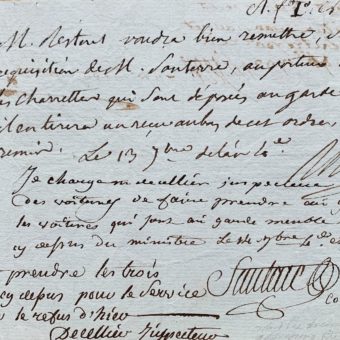 M. Restout voudra bien remettre, 
acquisition de M. Santerre, au porteur
charrettes qui sont déposés au garde
il en tirera un reçu au bas de cet ordre,
Le 13 7bre de l'an 4e.
Je charge M. decellier inspecteur
des voitures de faire prendre au
les voitures qui sont au garde meuble
cy dessus du ministre Le 14 7bre 4e
prendre les trois
cy dessus pour le service
le refus d'hier
Santerre
Decellier Inspecteur